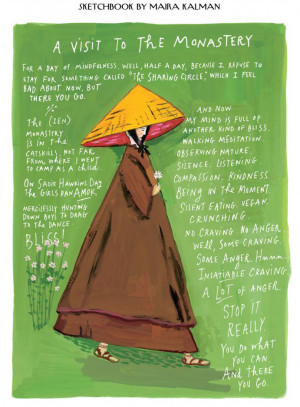 SKETCHBOOK BY MAIRA KALMAN
A VISIT TO THE MONASTERY
FOR A DAY OF MINDFULNESS. WELL, HALF A DAY, BECAUSE I REFUSE TO
STAY FOR SOMETHING CALLED "THE SHARING CIRCLE," WHICH I FEEL
BAD ABOUT NOW, BUT
THERE YOU GO.
THE (ZEN)
MONASTERY
IS IN THE
CATSKILLS, NOT FAR
FROM WHERE I WENT
TO CAMP AS A CHILD.
ON SADIE HAWKINS DAY
THE GIRLS RAN AMOK,
MERCILESSLY HUNTING
DOWN BOYS TO DRAG
TO THE DANCE.
BLISS!
AND NOW
MY MIND IS FULL OF
ANOTHER KIND OF BLISS.
WALKING MEDITATION.
OBSERVING NATURE.
SILENCE. LISTENING.
COMPASSION. KINDNESS.
BEING IN THE MOMENT.
SILENT EATING. VEGAN.
CRUNCHING.
NO CRAVING. NO ANGER.
WELL, SOME CRAVING.
SOME ANGER. HMMM.
INSATIABLE CRAVING.
A LOT OF ANGER.
STOP IT.
REALLY.
YOU DO WHAT
YOU CAN.
AND THERE
YOU GO.